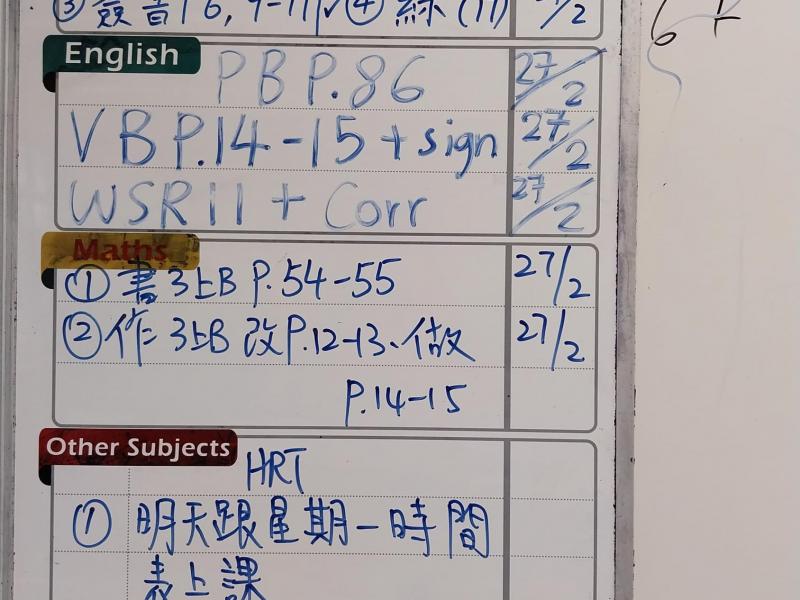 English
PB P.86 27/2
VB P.14-15 + sign 27/2
WSR11 + Corr 27/2
Maths
① 書 3上B P.54-55 27/2
② 作 3上B 改P.12-13、做 27/2
P.14-15
Other Subjects
HRT
① 明天跟星期一時間
表上課